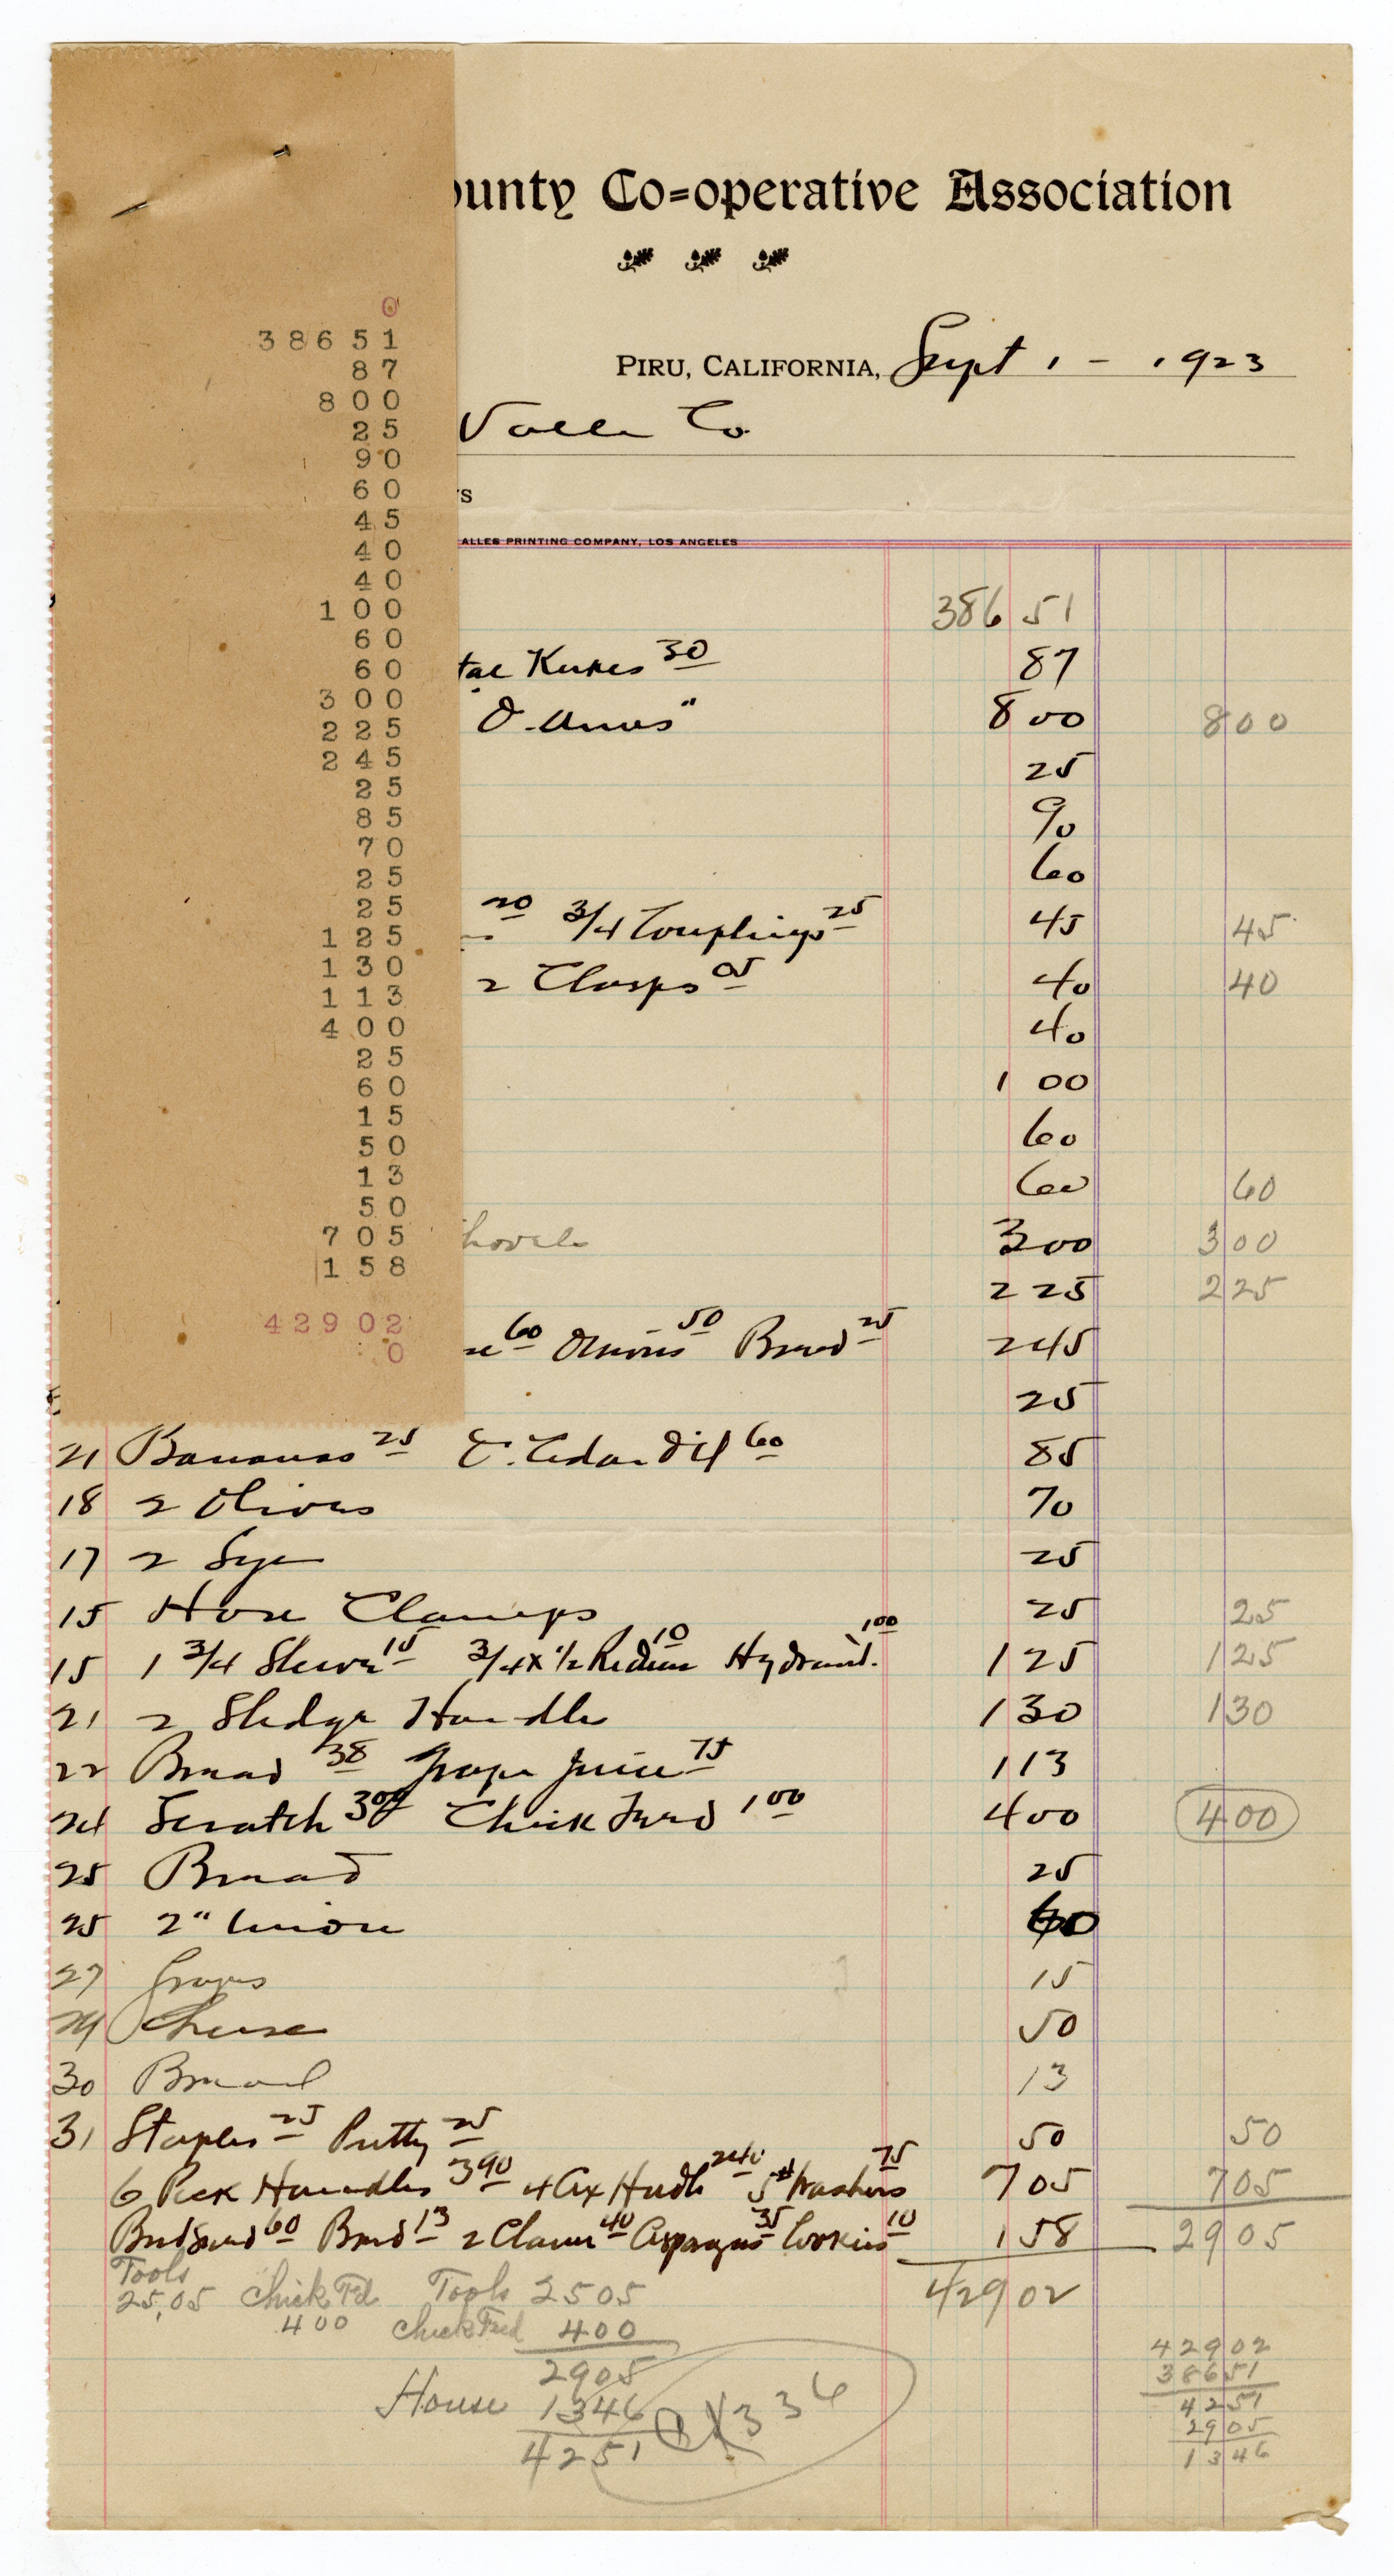 0
38651
87
800
25
90
60
45
40
40
100
60
60
300
225
245
25
85
70
25
25
125
130
113
400
25
60
15
50
13
50
705
158
42902
0
ounty Co=operative Association
PIRU, CALIFORNIA, Sept 1 - 1923
Valle Co.
's
ALLES PRINTING COMPANY, LOS ANGELES
386 51
30 87
8 00 800
25
90
60
20 3/4 Couplings 25 45 45
2 Clasps 05 40 40
40
1 00
60
60 60
hovels 3 00 300
2 25 225
60 Onions 50 Bread 25 2 45
25
21 Bananas 25 O. Cedar Oil 60 85
18 2 Olives 70
17 2 Lye 25
15 Hose Clamps 25 25
15 1 3/4 Sleeve 15 3/4 x 1/2 Reducer 10 Hydrant. 1 00 1 25 125
21 2 Sledge Handles 1 30 130
22 Bread 38 Grape Juice 75 1 13
24 Scratch 3 00 Chick Feed 1 00 4 00 400
25 Bread 25
25 2" Union 60
27 Grapes 15
29 Cheese 50
30 Bread 13
31 Staples 25 Putty 25 50 50
6 Pick Handles 3 90 4 Ax Hndls 2 40 5# Washers 75 7 05 705
Birdseed 60 Bread 13 2 Clams 40 Asparagus 35 Cookies 10 1 58 2905
Tools
25.05 Chick Fd. Tools 2505 429 02
400 Chick Feed 400
2905
House 1346
4251
336
42902
38651
4251
2905
1346